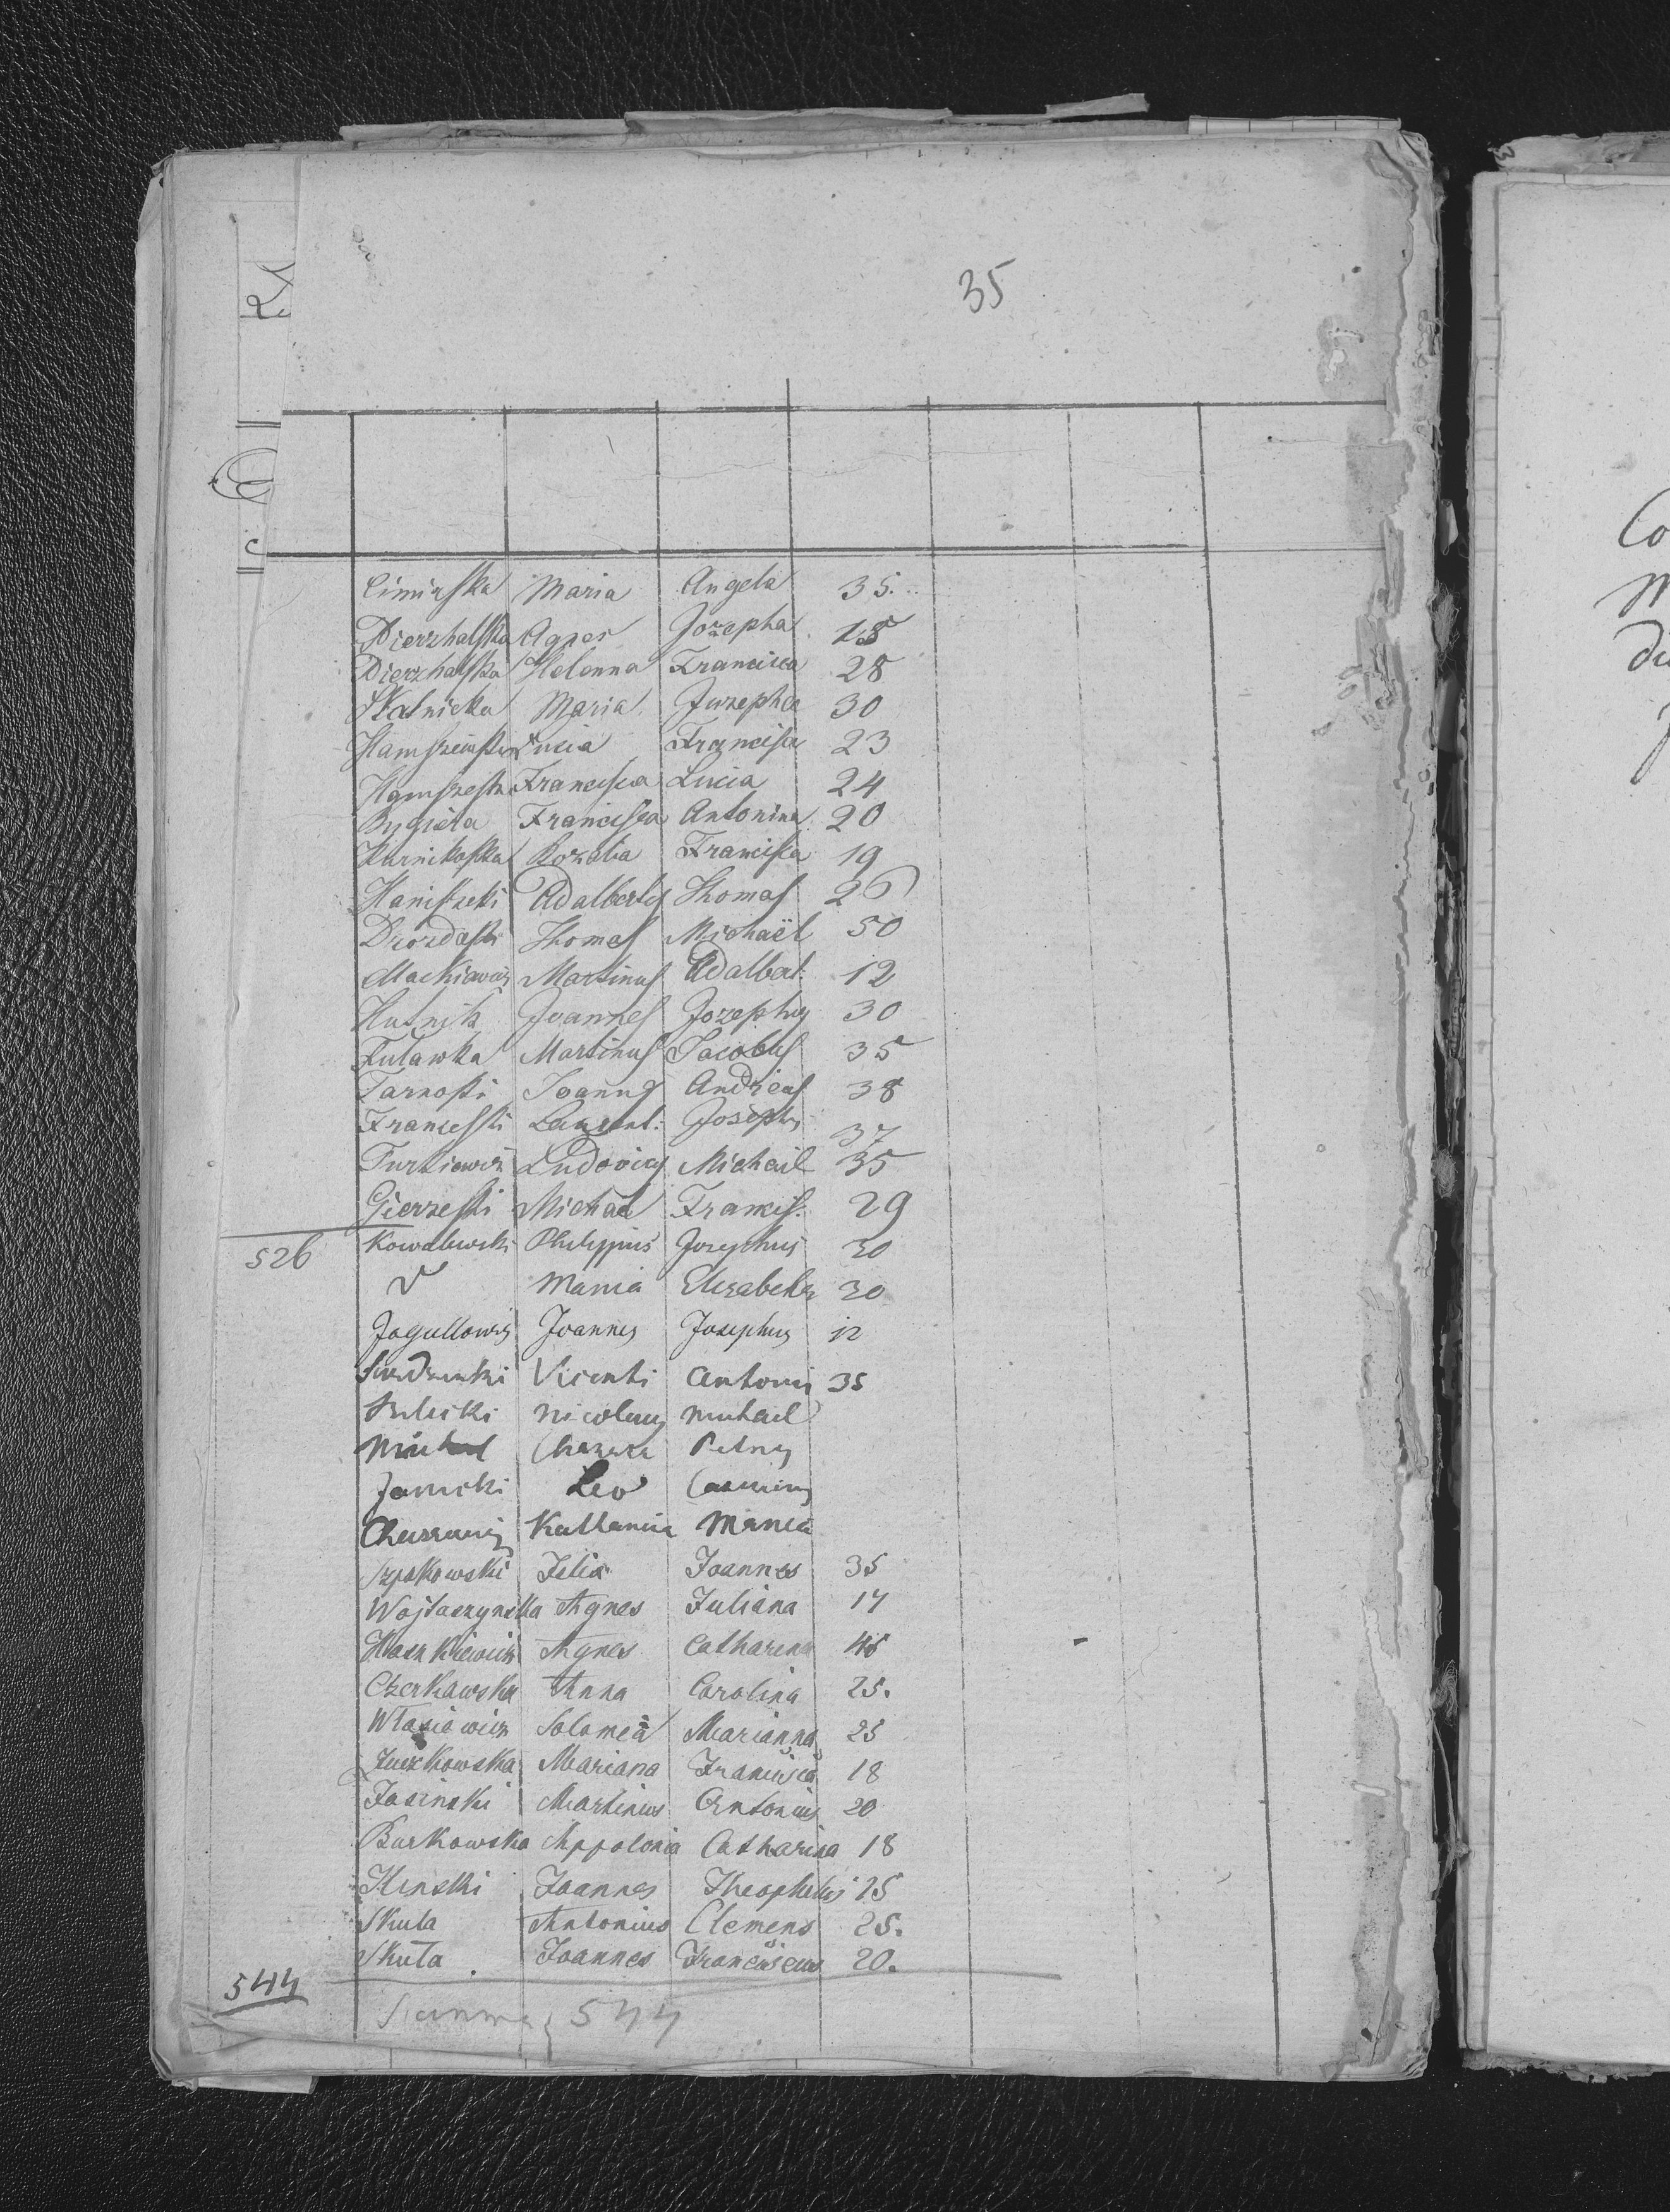 35
Cimirska Maria Angela 35.
Dierzhalska Agnes Jozepha 18
Dierzhalska Helenna Francisca 28
Skalnicka Maria Juzepha 30
Lucia Francisca 23
Francisca Lucia 24
Francisca Antonina 20
Kurnikoska Rozalia Francisca 19
Haniszeki Adalbertus Thomas 26
Drozdoski Thomas Michaël 50
Mackiewicz Martinus Adalbert: 12
Hutnik Joannes Jozephus 30
Fulawka Martinus Jacobus 35
Tarnoski Joannes Andreas 38
Franceski Laurent: Josephus 37
Turkiewicz Ludovicus Michail 35
Gierzeski Michael Francis: 29
526 Kowalewski Philippus Josephus 30
V Maria Elizabetha 30
Jagullowicz Joannes Josephus 12
Vicenti Antoni 35
Nicolaus Michael
Michael Petrus
Janicki Leo Casimirus
Maria
Szpakowski Felix Joannes 35
Wojtaszynska Agnes Juliana 17
Agnes Catharina 45
Czerkawska Anna Carolina 25.
Własiowicz Solomea Marianna 25
Juszkowska Mariana Francisca 18
Jasinski Martinus Antonius 20
Burkowska Appolonia Catharina 18
Kinski Joannes Theophilus 25
Skuta Antonius Clemens 25.
Skuta Joannes Franciscus 20.
544
Summa 544